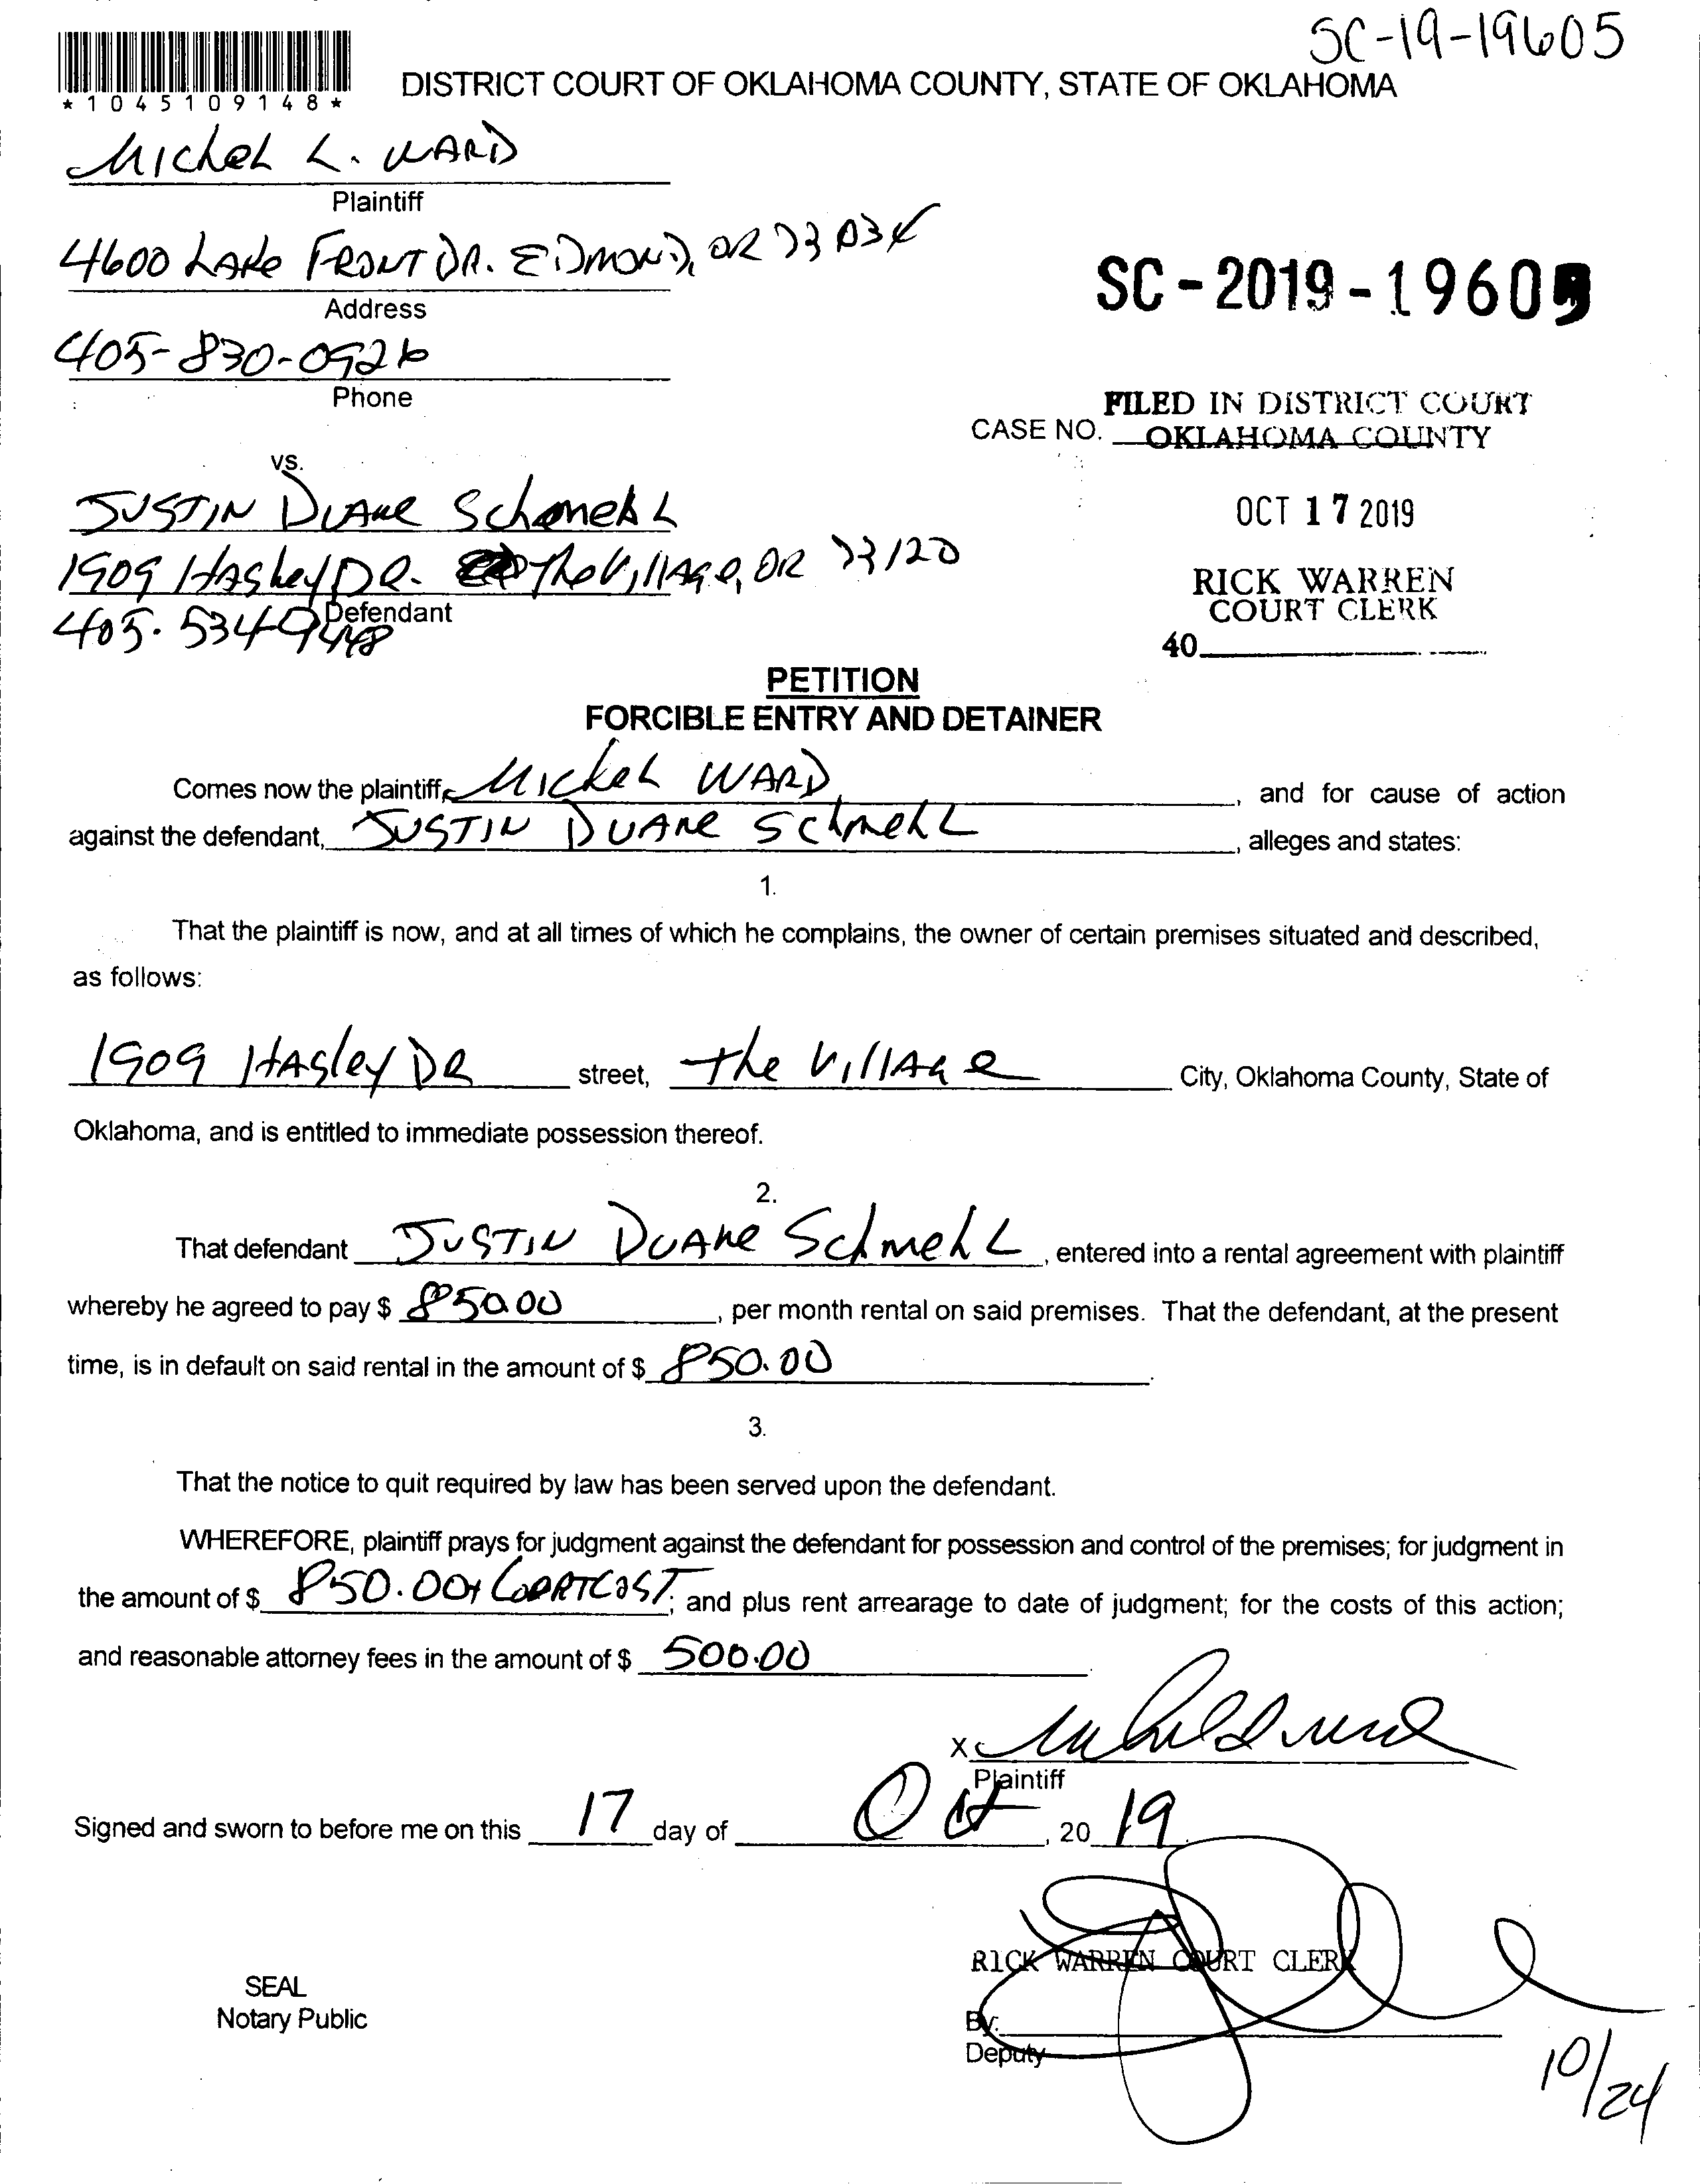 SC-19-19605
*1045109148*
DISTRICT COURT OF OKLAHOMA COUNTY, STATE OF OKLAHOMA
Michel L. WARD
Plaintiff
4600 LAke FRONT DR. EDMOND, OK 73034
Address
SC-2019-19605
405-830-0926
Phone
FILED IN DISTRICT COURT
CASE NO. OKLAHOMA COUNTY
vs.
JUSTIN DUANE Schmehl
OCT 17 2019
1909 HASley DR. The VillAge, OK 73120
RICK WARREN
Defendant
COURT CLERK
405-534-9448
40
PETITION
FORCIBLE ENTRY AND DETAINER
Comes now the plaintiff, Michel WARD, and for cause of action
against the defendant, JUSTIN DUANE Schmehl, alleges and states:
1.
That the plaintiff is now, and at all times of which he complains, the owner of certain premises situated and described,
as follows:
1909 HASley DR street, the VillAge City, Oklahoma County, State of
Oklahoma, and is entitled to immediate possession thereof.
2.
That defendant JUSTIN DUANE Schmehl, entered into a rental agreement with plaintiff
whereby he agreed to pay $ 850.00, per month rental on said premises. That the defendant, at the present
time, is in default on said rental in the amount of $ 850.00.
3.
That the notice to quit required by law has been served upon the defendant.
WHEREFORE, plaintiff prays for judgment against the defendant for possession and control of the premises; for judgment in
the amount of $ 850.00+ COURTCOST; and plus rent arrearage to date of judgment; for the costs of this action;
and reasonable attorney fees in the amount of $ 500.00
X
Plaintiff
Signed and sworn to before me on this 17 day of Oct, 20 19.
RICK WARREN COURT CLERK
SEAL
Notary Public
By:
Deputy
10/24